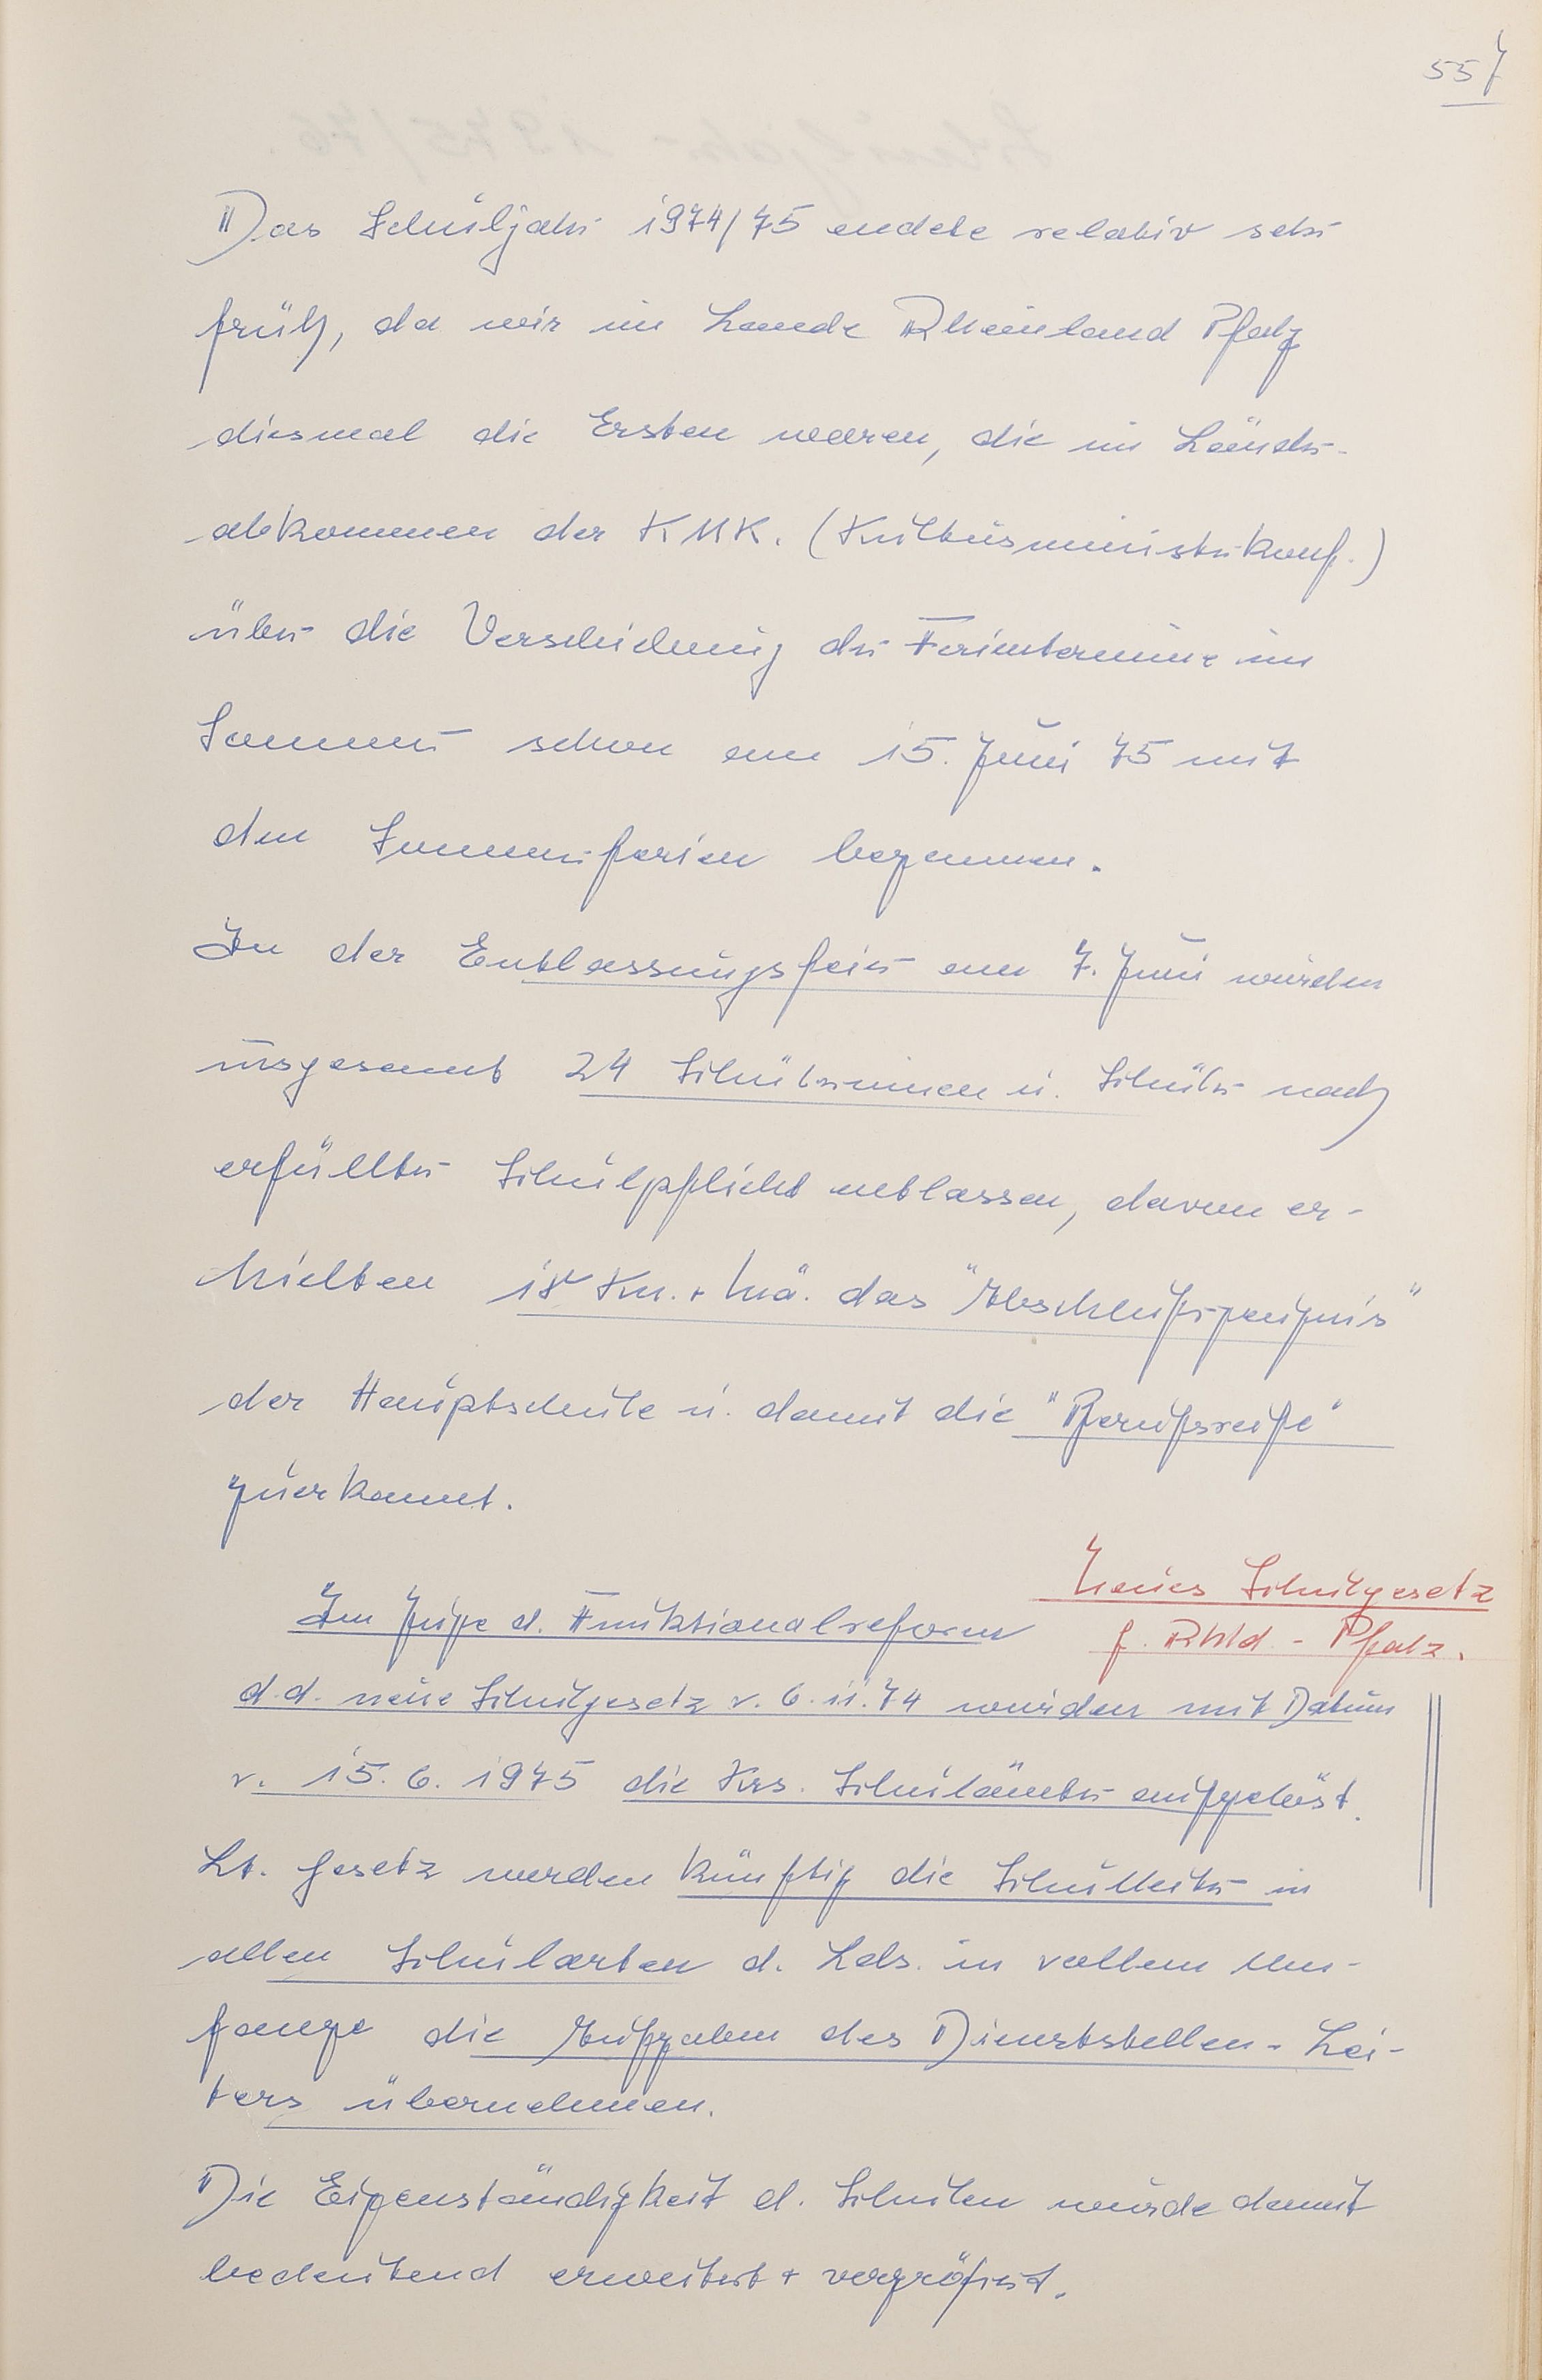 557
Das Schuljahr 1974/75 endete relativ sehr
früh, da wir im Lande Rheinland Pfalz
diesmal die Ersten waren, die im Länder-
abkommen der KMK. (Kultusministerkonf.)
über die Verschiebung der Ferientermine im
Sommer schon am 15. Juni 75 mit
den Sommerferien begannen.
In der Entlassungsfeier am 7. Juni wurden
insgesamt 24 Schülerinnen u. Schüler nach
erfüllter Schulpflicht entlassen, davon er-
hielten 18 Kn. + Mä. das "Abschlußzeugnis"
der Hauptschule u. damit die "Berufsreife"
zuerkannt.
Neues Schulgesetz
f. Rhld. - Pfalz.
Im Zuge d. Funktionalreform
d. d. neue Schulgesetz v. 6.11.74 wurden mit Datum
v. 15. 6. 1975 die Krs. Schulämter aufgelöst.
Lt. Gesetz werden künftig die Schulleiter in
allen Schularten d. Lds. in vollem Um-
fange die Aufgaben des Dienststellen-Lei-
ters übernehmen.
Die Eigenständigkeit d. Schulen wurde damit
bedeutend erweitert + vergrößert.